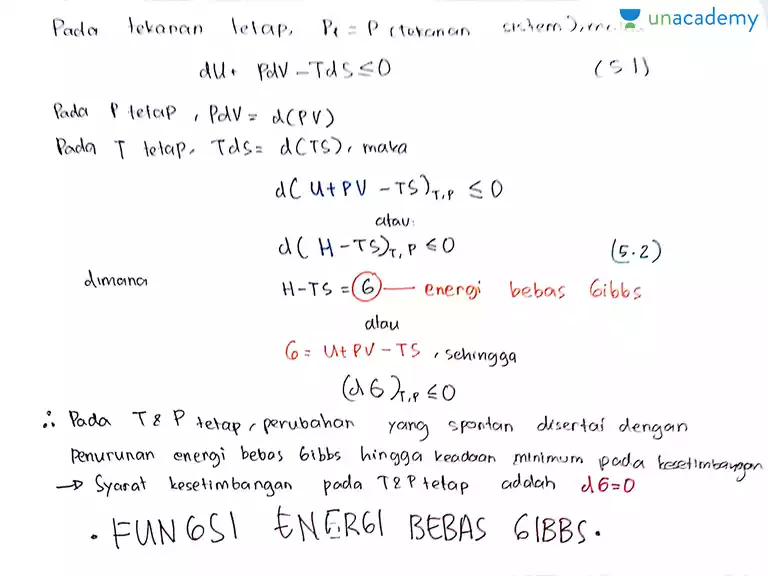 unacademy
Pada tekanan tetap, Pₑ = P (tekanan sistem), m
dU + PdV - TdS ≤ 0 (5 1)
Pada P tetap, PdV = d(PV)
Pada T tetap, TdS = d(TS), maka
d(U+PV - TS)T,P ≤ 0
atau:
d(H-TS)T,P ≤ 0 (5.2)
dimana H-TS = G energi bebas Gibbs
atau
G = U+PV-TS, sehingga
(dG)T,P ≤ 0
∴ Pada T & P tetap, perubahan yang spontan disertai dengan
penurunan energi bebas Gibbs hingga keadaan minimum pada kesetimbangan
→ Syarat kesetimbangan pada T&P tetap adalah dG=0
• FUNGSI ENERGI BEBAS GIBBS •